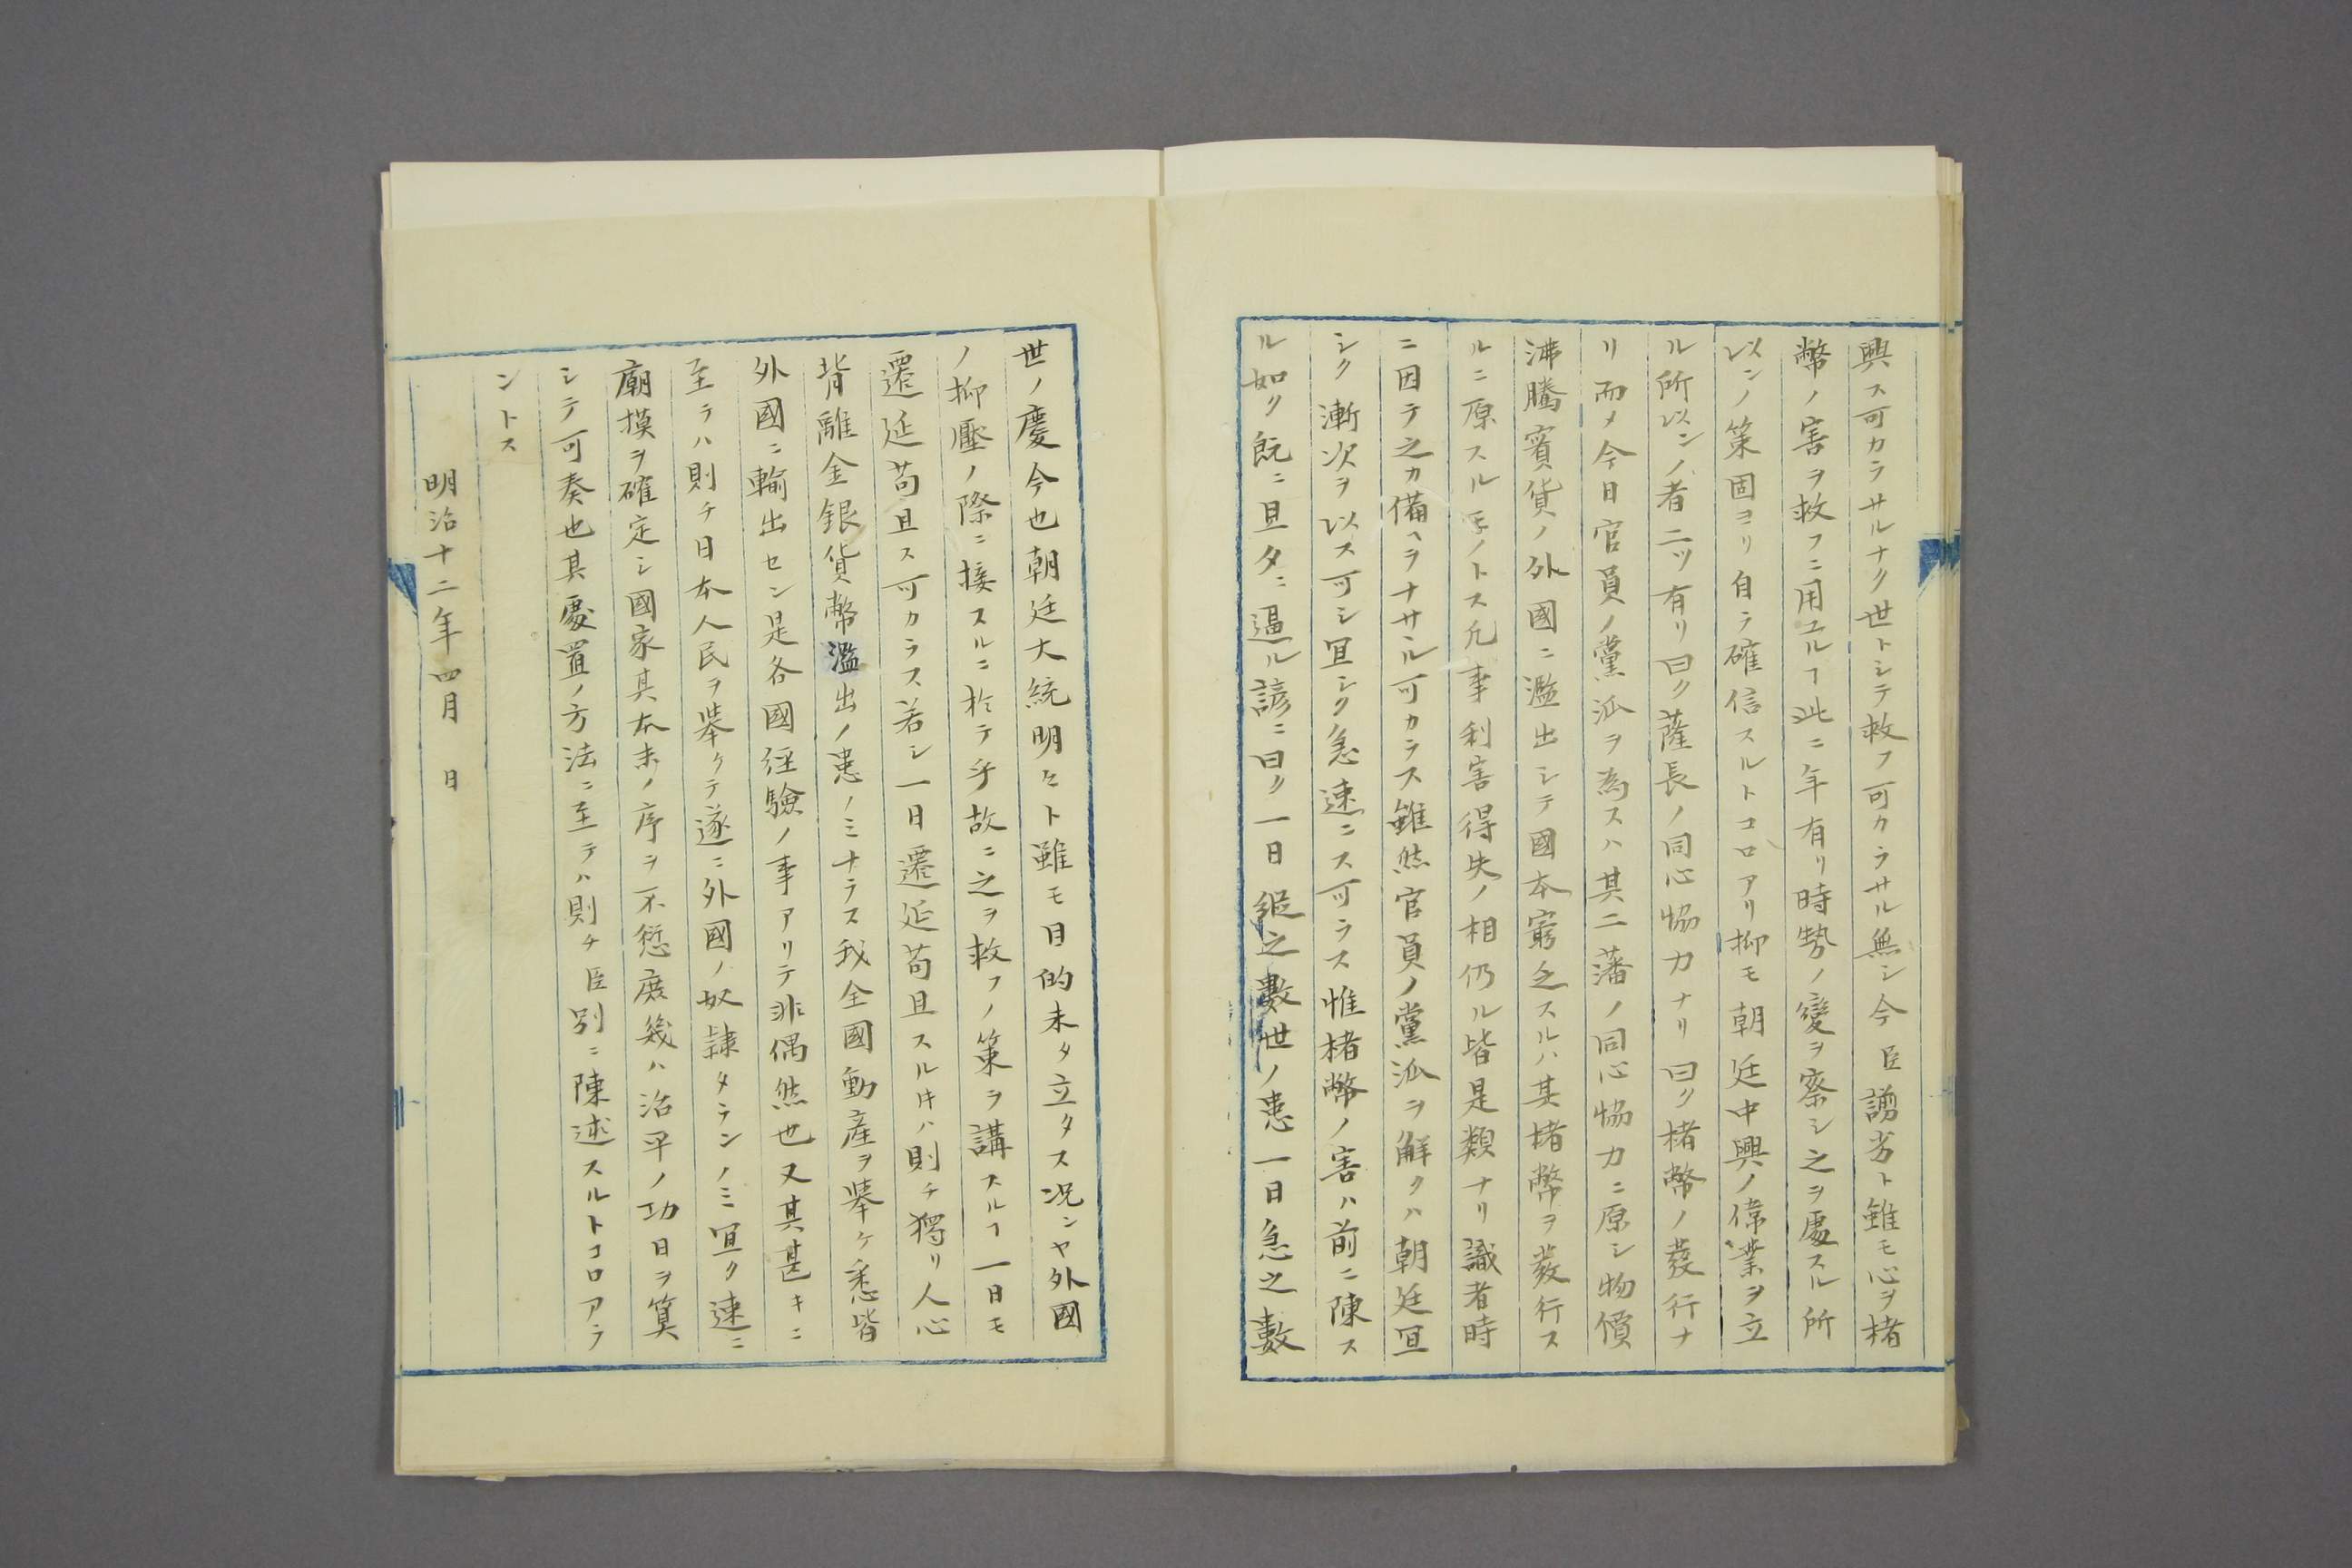 興ス可カラサルナク世トシテ救フ可カラサル無シ今臣謭劣ト雖モ心ヲ楮
幣ノ害ヲ救フニ用ユルヿ此ニ年有リ時勢ノ變ヲ察シ之ヲ處スル所
以ンノ策固ヨリ自ラ確信スルトコロアリ抑モ朝廷中興ノ偉業ヲ立
ル所以ンノ者二ツ有リ曰ク薩長ノ同心協力ナリ曰ク楮幣ノ發行ナ
リ而メ今日官員ノ黨派ヲ為スハ其二藩ノ同心協力ニ原シ物價
沸騰寳貨ノ外國ニ濫出シテ國本窮乏スルハ其楮幣ヲ發行ス
ルニ原スルモノトス凡事利害得失ノ相仍ル皆是類ナリ識者時
ニ因テ之カ備ヘヲナサヽル可カラス雖然官員ノ黨派ヲ解クハ朝廷宜
シク漸次ヲ以ス可シ宜シク急速ニス可ラス惟楮幣ノ害ハ前ニ陳ス
ル如ク既ニ旦夕ニ逼ル諺ニ曰ク一日縦之數世ノ患一日急之數
世ノ慶今也朝廷大統明々ト雖モ目的未タ立タス况ンヤ外國
ノ抑壓ノ際ニ接スルニ於テ乎故ニ之ヲ救フノ策ヲ講スルヿ一日モ
遷延苟且ス可カラス若シ一日遷延苟且スル𪜈ハ則チ獨リ人心
背離金銀貨幣濫出ノ患ノミナラス我全國動產ヲ挙ケ悉皆
外國ニ輸出セン是各國経驗ノ事アリテ非偶然也又其甚キニ
至テハ則チ日本人民ヲ挙ケテ遂ニ外國ノ奴隷タランノミ宜ク速ニ
廟摸ヲ確定シ國家其本末ノ序ヲ不愆庻幾ハ治平ノ功日ヲ算
シテ可奏也其處置ノ方法ニ至テハ則チ臣別ニ陳述スルトコロアラ
ントス
明治十二年四月　日